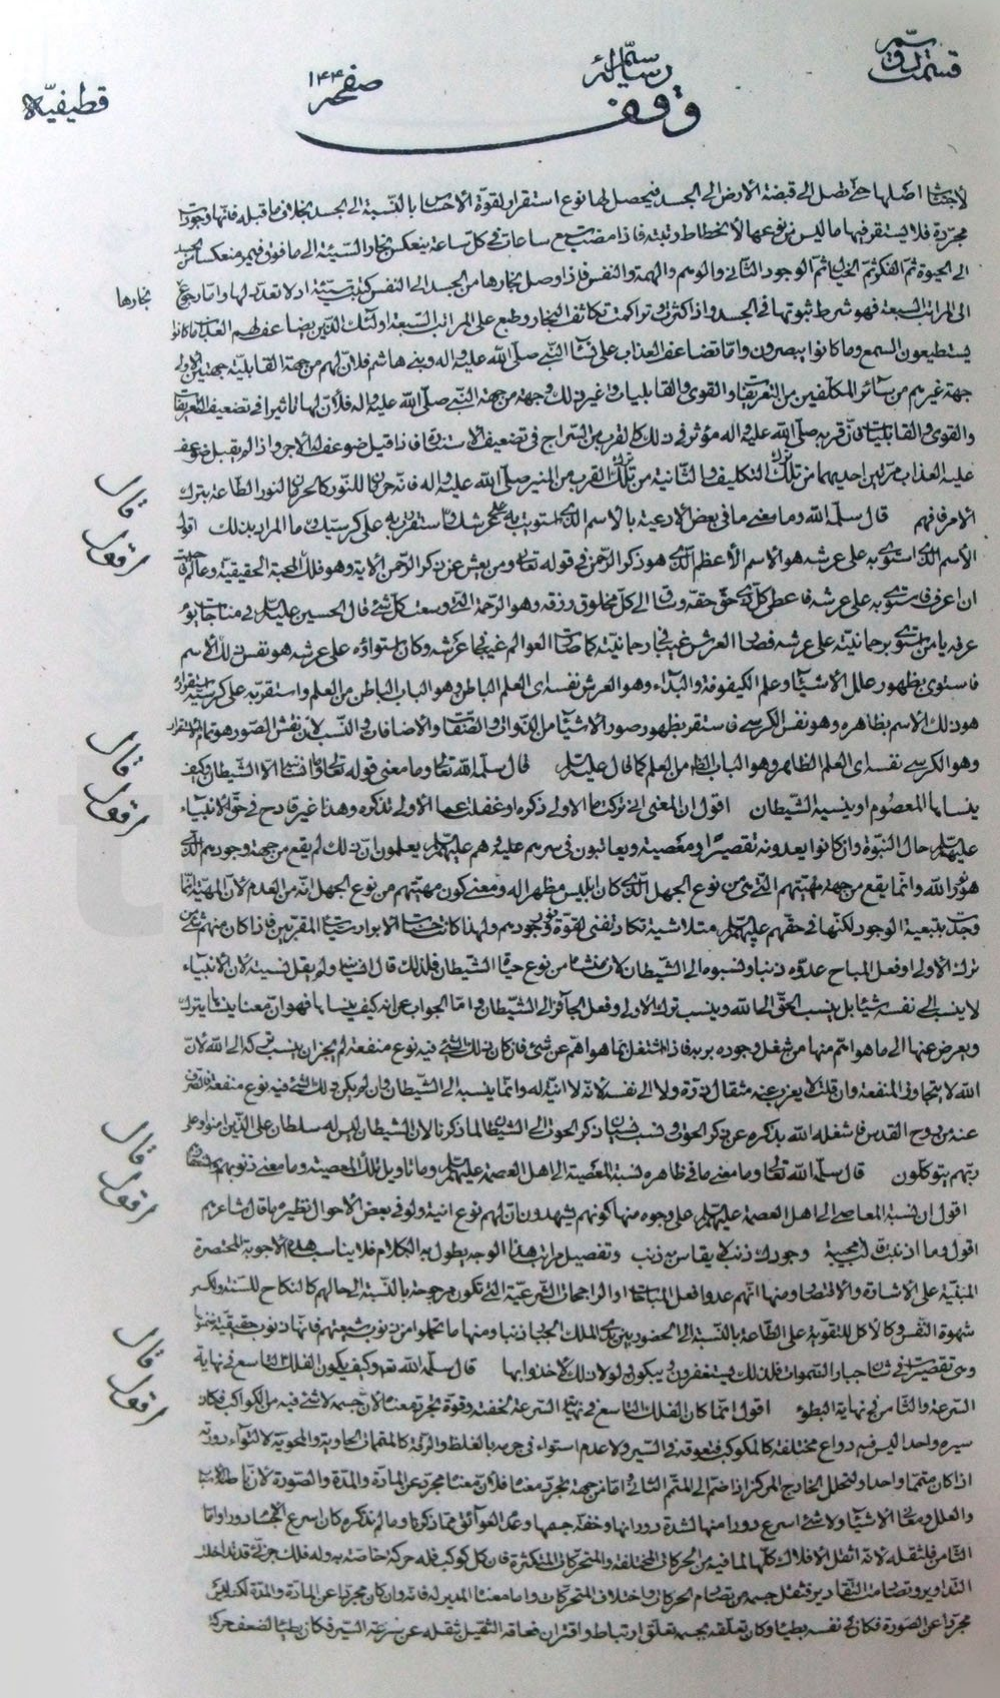 قسمت دوم
رسالة
صفحه ١٤٤
قطيفيّه
وقف
اصلها حتى تصل الى قبضة الارض الى الجسد فيحصل لها نوع استقرار لقوة الاحساس بالنسبة الى الجسد بخلاف ما قبله فانها وجودات
مجردة فلا يستقر فيها ما ليس من نوعها لانحطاط رتبته فاذا مضت سبع ساعات في كل ساعة ينعكس بخار السيئة الى ما فوق فيمر منعكسا من الجسد
الى الحيوة ثم الفكر ثم الخيال ثم الوجود الثاني والوهم والهمة والنفس فاذا وصل بخارها من الجسد الى النفس كتبت سيئة اذ لا تعد له لها واما رجوع
بخارها
الى المراتب السبعة فهو شرط ثبوتها في الجسد واذا كثرت تراكمت وتكاثف البخار وطبع على المراتب السبعة اولئك الذين يضاعف لهم العذاب ما كانوا
يستطيعون السمع وما كانوا يبصرون واما تضاعف العذاب على نساء النبي صلى الله عليه واله وبني هاشم فلان لهم من جهة القابلية جهتين الاولى
جهة غيرهم من سائر المكلفين من التعريفات والقوى والقابليات وغير ذلك وجهة من جهة النبي صلى الله عليه واله فلان لها تاثيرا في تضعيف التعريفات
والقوى والقابليات فان قربه صلى الله عليه واله مؤثر في ذلك كالقرب من السراج في تضعيف الاستنارة فاذا قبل ضوعف له الاجر واذا لم يقبل ضوعف
عليه العذاب مرتين احديهما من ترك تلك التكليف والثانية من ترك تلك القرب من المنير صلى الله عليه واله فانه حرمان للنور كالحرمان لنور الطاعة بترك
الامر فافهم قال سلمه الله وما معنى ما في بعض الادعية بالاسم الذي استويت به على عرشك واستقررت به على كرسيك وما المراد بذلك اقول
الاسم الذي استوى به على عرشه هو الاسم الاعظم الذي هو ذكر الرحمن في قوله تعالى ومن يعش عن ذكر الرحمن الاية وهو فلك المحبة الحقيقية وعالم فاحببت
ان اعرف فاستوى به على عرشه فاعطى كل ذي حق حقه وساق الى كل مخلوق رزقه وهو الرحمة التي وسعت كل شيء قال الحسين عليه السلام في مناجاته يوم
عرفة يا من استوى برحمانيته على عرشه فصار العرش غيبا في رحمانيته كما صارت العوالم غيبا في عرشه وكان استواؤه على عرشه هو نفس ذلك الاسم
فاستوى بظهور علل الاشياء وعلم الكيفوفة والبداء وهو العرش نفسه اى العلم الباطن وهو الباب الباطن من العلم واستقر به على كرسيه استقراره
هو ذلك الاسم بظاهره وهو نفس الكرسي فاستقر بظهور صور الاشياء من الذوات والصفات والاضافات والنسب لان نقش الصور هو تمام الاستقرار
وهو الكرسي نفسه اى العلم الظاهر وهو الباب الظاهر من العلم كما قال عليه السلام قال سلمه الله تعالى وما معنى قوله تعالى وما انسانيه الا الشيطان وكيف
ينسا ما المعصوم او ينسيه الشيطان اقول ان المعنى اني تركت ما الاولى ذكره او غفلت عما الاولى تذكره وهذا غير قادح في حق الانبياء
عليهم السلام حال النبوة وان كانوا يعدونه تقصيرا او معصية ويعاتبون في سرهم عليه وهم عليهم السلام يعلمون ان ذلك لم يقع من جهة وجودهم الذي
هو نور الله وانما يقع من جهة مهيتهم التي هي من نوع الجهل الذي كان ابليس مظهرا له ومعنى كون مهيتهم من نوع الجهل انه من العدم لان المهية انما
وجدت بتبعية الوجود لكنها في حقهم عليهم السلام متلاشية تكاد تفنى لقوة نور وجودهم ولهذا كانت حسنات الابرار سيئات المقربين فاذا كان منهم شئ من
ترك الاولى او فعل المباح عدوه ذنبا ونسبوه الى الشيطان لان منشاه من نوع حياة الشيطان فلذلك قال انسانيه ولم يقل نسيته لان الانبياء
لا ينسب الى نفسه شيئا بل ينسب الحق الى الله وينسب ترك الاولى وفعل الجائز الى الشيطان واما الجواب عن انه كيف ينساها فهو ان معنا ينسا يترك
ويعرض عنها الى ما هو اهم منها من شغل وجوده بربه فاذا اشتغل بما هو اهم عن شئ فان كان ذلك الشئ فيه نوع منفعة لم يجز ان ينسب تركه الى الله لان
الله لا يتجاوز المنفعة وان قلت لا يعزب عنه مثقال ذرة ولا الى نفسه لانه لا انية له وانما ينسبه الى الشيطان وان لم يكن ذلك الشئ فيه نوع منفعة فانصرف
عنه من روح القدس فاشغله الله بذكره عن ذكر الحوت ونسب نسيان ذكر الحوت الى الشيطان لما ذكرنا لان الشيطان ليس له سلطان على الذين امنوا وعلى
ربهم يتوكلون قال سلمه الله تعالى وما معنى ما في ظاهره نسبة المعصية الى اهل العصمة عليهم السلام وما تاويل تلك المعصية وما معنى ذنوبهم
اقول ان نسبة المعاصي الى اهل العصمة عليهم السلام على وجوه منها كونهم يشهدون ان لهم نوع انية ولو في بعض الاحوال نظير ما قال شاعرهم
اقول وما اذنبت قالت مجيبة وجودك ذنب لا يقاس به ذنب وتفصيل مراتب هذا الوجه يطول به الكلام فلا يناسب هذه الاجوبة المختصرة
المبنية على الاشارة والاقتصار ومنها انهم عدوا فعل المباحات او الراجحات الشرعية التي تكون مرجوحة بالنسبة الى حالهم كالنكاح للسنة ولكسر
شهوة النفس وكالاكل للتقوية على الطاعة بالنسبة الى الحضور بين يدي الملك الجبار ذنبا ومنها ما تحملوا من ذنوب شيعتهم فانها ذنوب حقيقية
وهي تقصيرات في السموات فلذلك يستغفرون ويبكون لولا ذلك لاخذوا بها قال سلمه الله تعالى وكيف يكون الفلك التاسع في نهاية
السرعة والثامن في نهاية البطؤ اقول انما كان الفلك التاسع في نهاية السرعة لخفته وقوة تجرد معناه لان جسمه لا شئ فيه من الكواكب فكان
سيره واحدا ليس فيه دواع مختلفة كالمكوكب فتعوقه في السير ولا عدم استواء في جرمه بالغلظ والرقة كالمتممات الحاوية والمحوية لالتواء دورته
اذا كان متمما واحدا ولتخلل الخارج المركز اذا ضم الى المتمم الثاني واما من جهة تجرد معناه فلان معناه مجرد عن المادة والمدة والصورة لانه باطلاق
والعلل ومعاني الاشياء ولا شئ اسرع دورا منها لشدة دورانها وخفة جسمها وعدم العوائق مما ذكرنا وما لم نذكره كان اسرع الاجسام دورا واما
الثامن فلثقله لانه اثقل الافلاك كلها لما فيه من الحركات المختلفة والمتحركات المتكثرة فان كل كوكب فله حركة خاصة به وله فلك جزئي قد تداخلت
التداوير وتصادمت التقادير فثقل جسمه من تصادم الحركات واختلاف المتحركات واما معناه المدير له فانه وان كان مجردا عن المادة والمدة لكنه ليس
مجردا عن الصورة فكان في نفسه بطيئا وكان تعلقه بجسمه تعلق ارتباط واقتران فعاقه الثقيل بثقله عن سرعة السير فكان بطيئا لضعف حركة
قال
قال
قال
قال